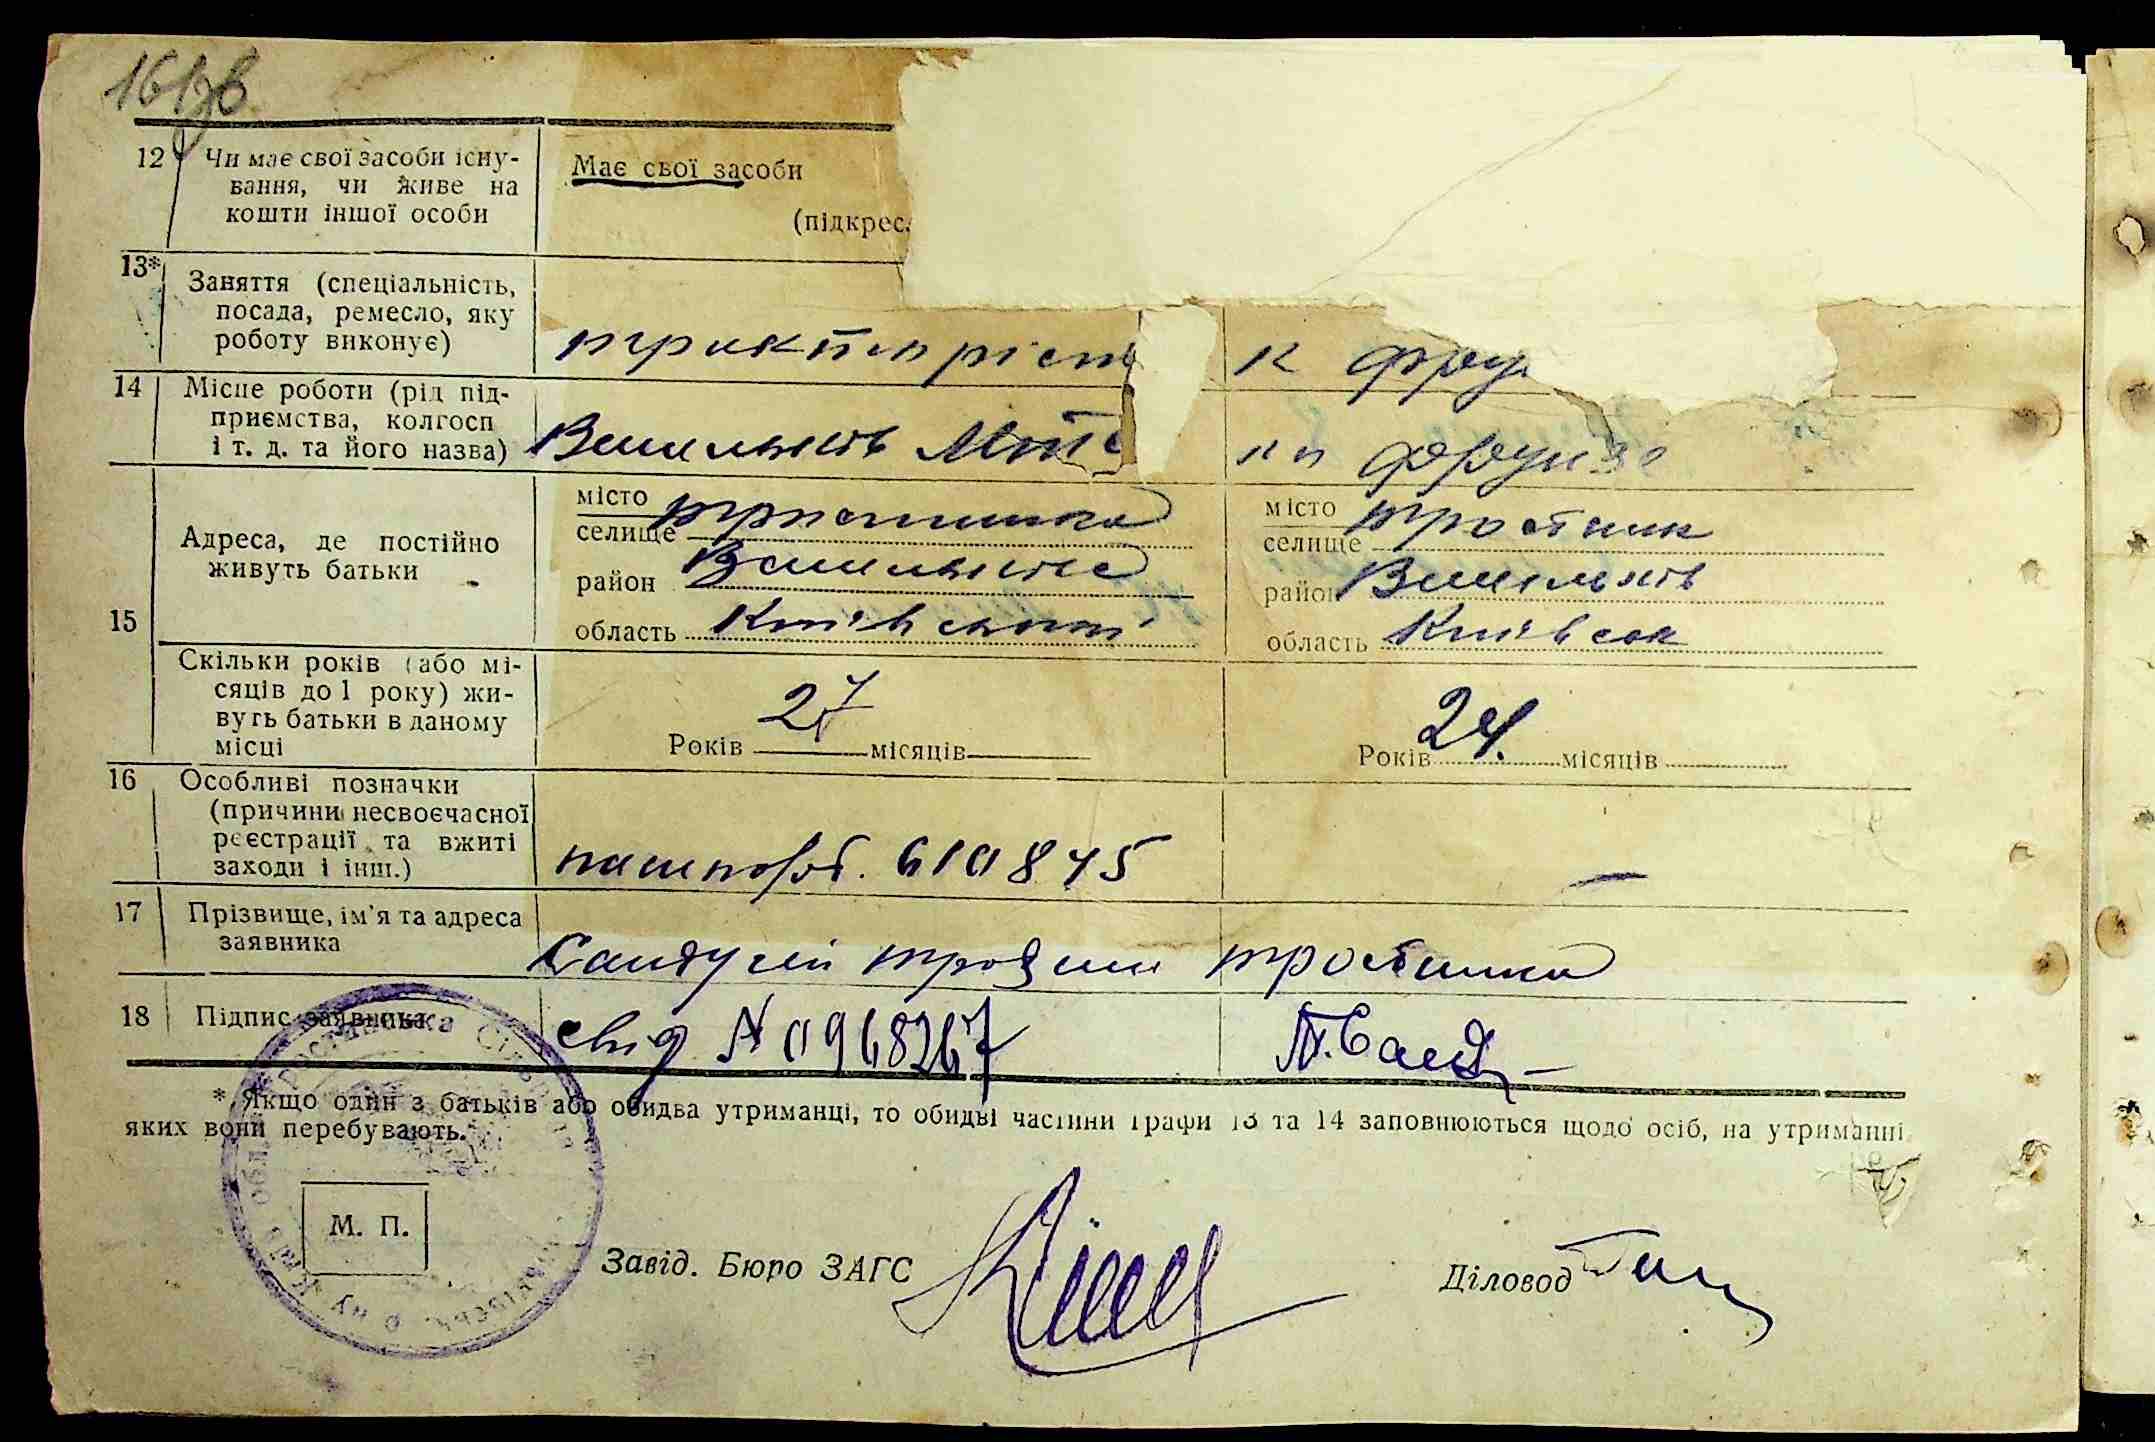 161зв
12 Чи має свої засоби існу-
вання, чи живе на
кошти іншої особи
Має свої засоби
(підкрес
13* Заняття (спеціальність,
посада, ремесло, яку
роботу виконує)
тракторіст к фру
14 Місце роботи (рід під-
приємства, колгосп
і т. д. та його назва)
Фрунзе
15 Адреса, де постійно
живуть батьки
місто
селище Тростинка
район
область Київської
місто
селище Тростинк
район
область Київськ
Скільки років (або мі-
сяців до 1 року) жи-
вуть батьки в даному
місці
Років 27 місяців
Років 24. місяців
16 Особливі позначки
(причини несвоєчасної
реєстрації та вжиті
заходи і інш.)
пашпорт. 610845
17 Прізвище, ім'я та адреса
заявника
Тростинка
18 Підпис заявника
свид № 0968267
* Якщо один з батьків або обидва утриманці, то обидві частини графи 13 та 14 заповнюються щодо осіб, на утриманні
яких вони перебувають.
М. П.
Завід. Бюро ЗАГС
Діловод